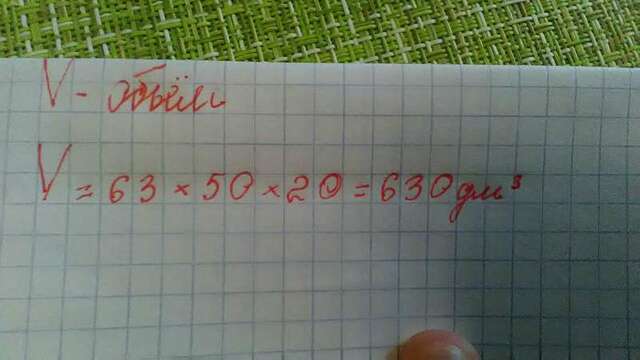 V - объём
V = 63 × 50 × 20 = 630 дм³